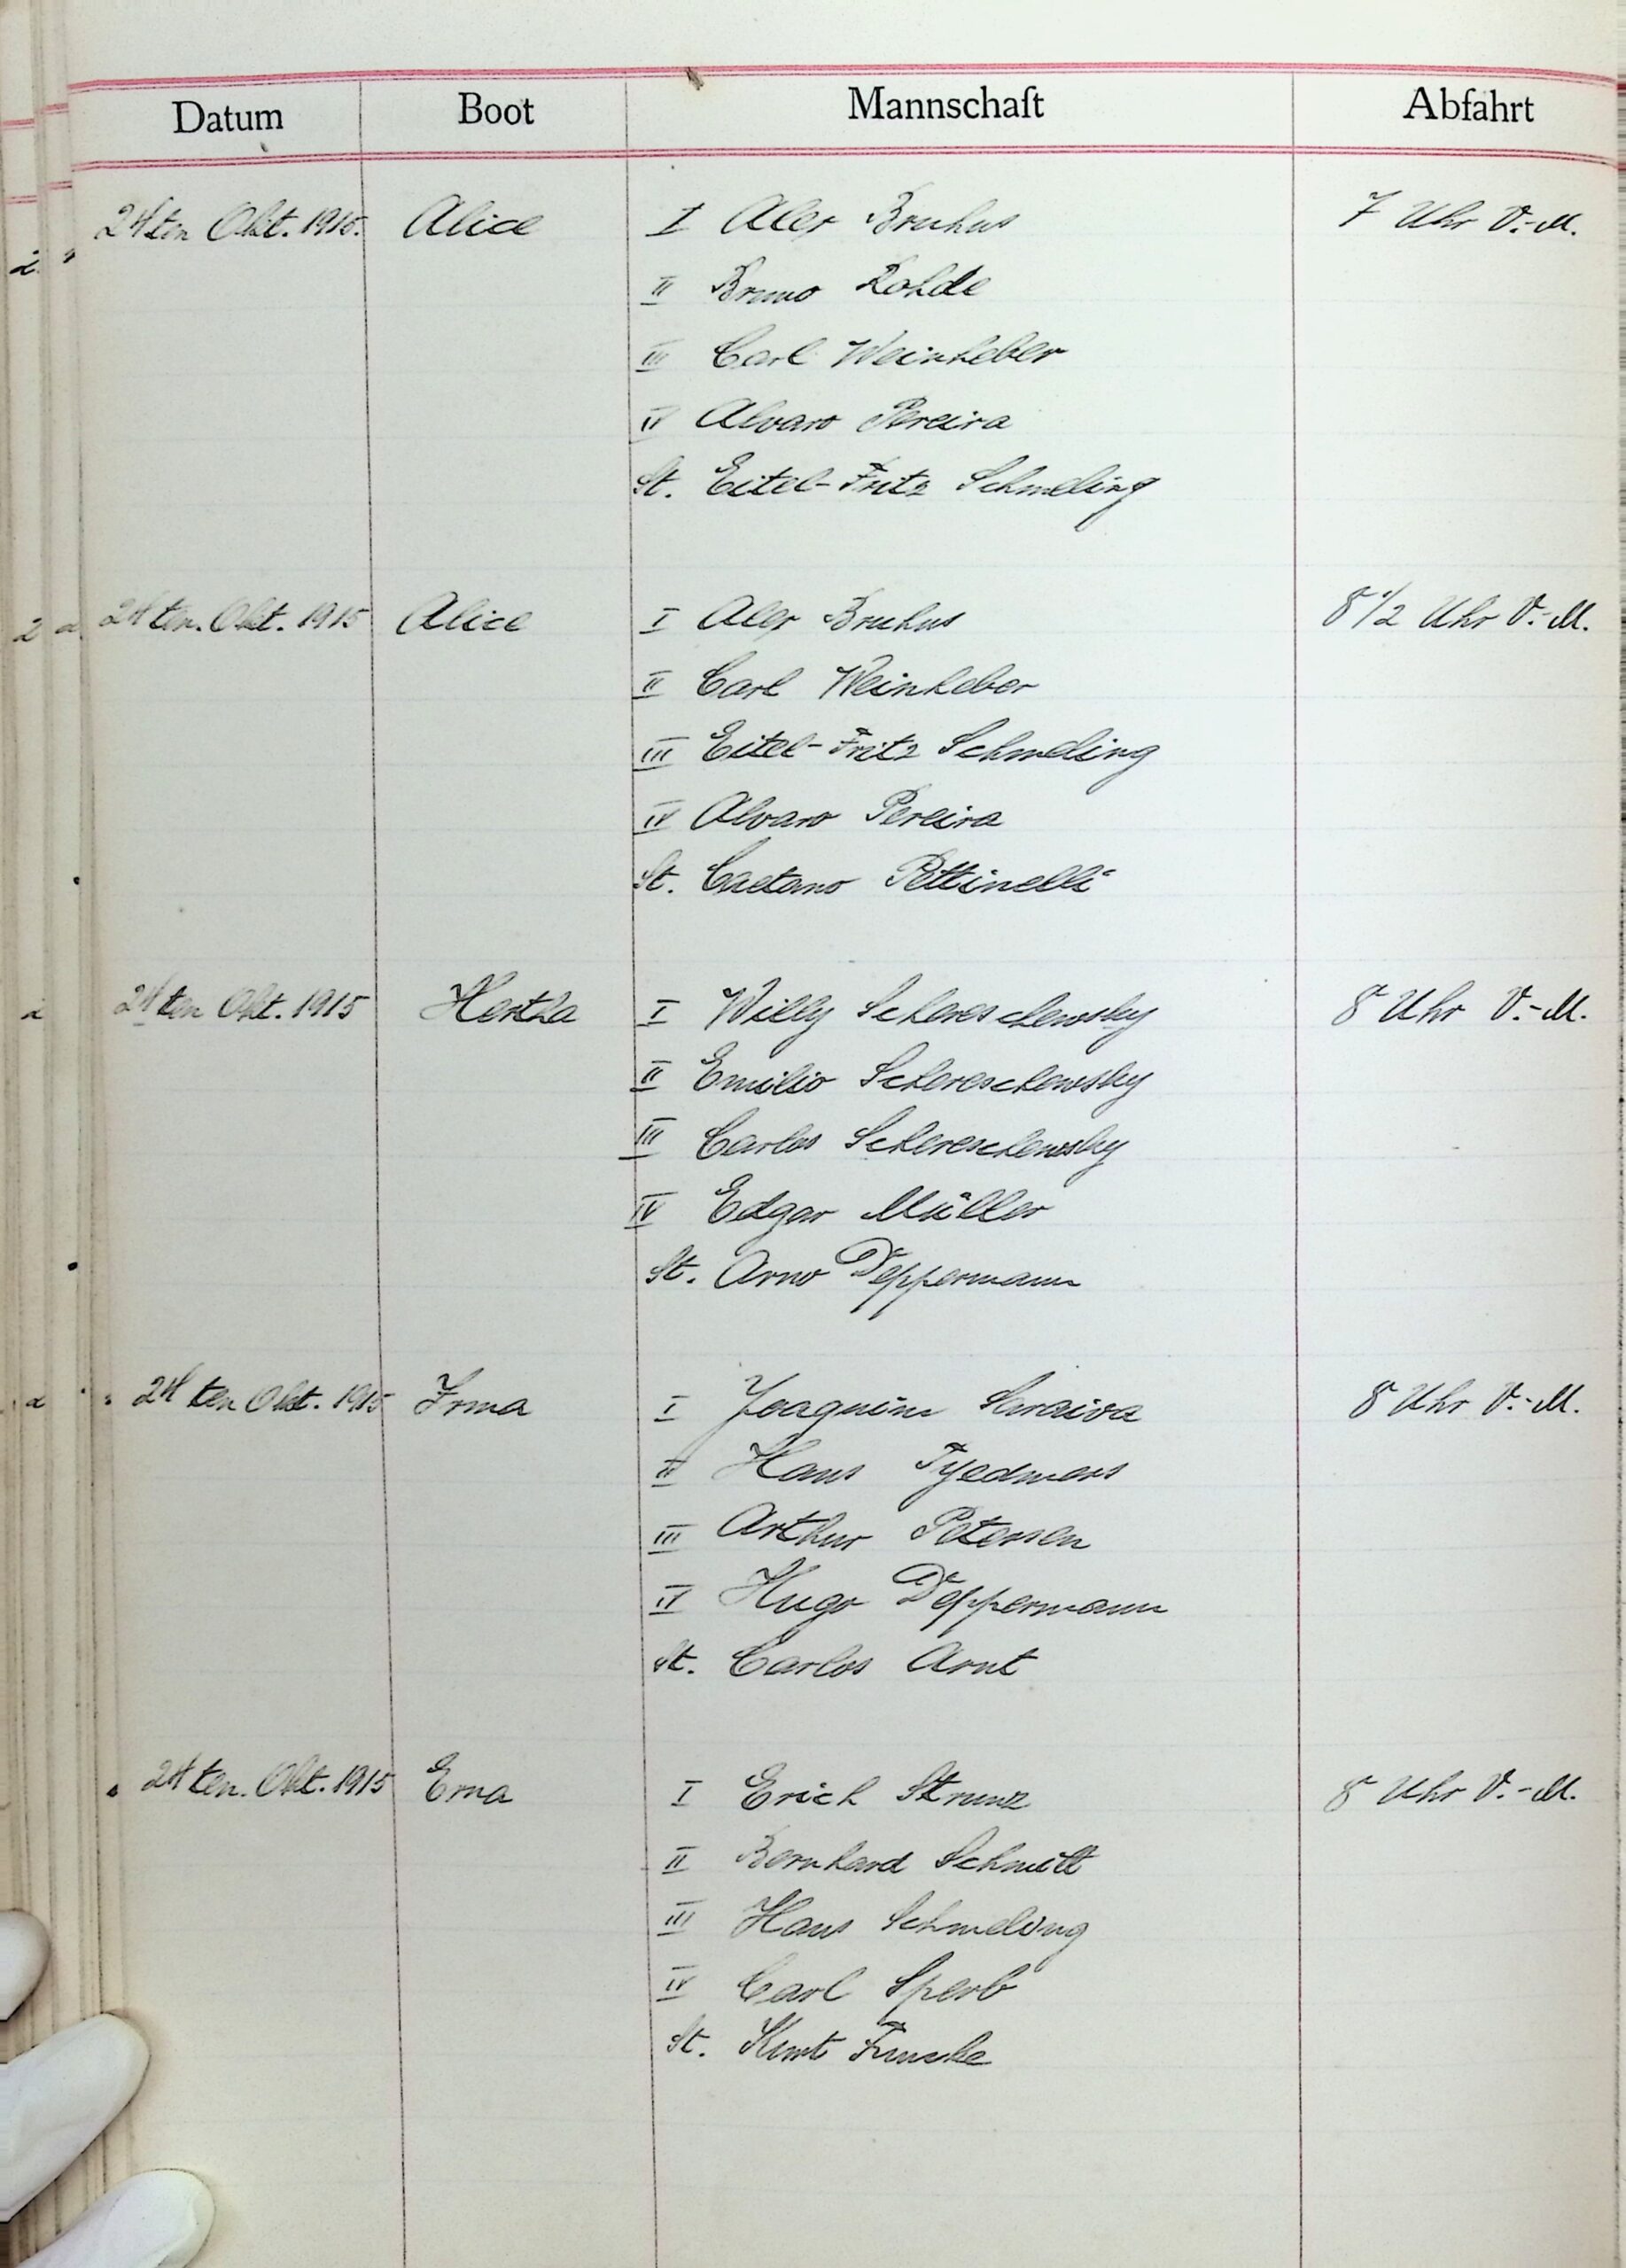 Datum Boot Mannschaft Abfahrt
24ten Okt. 1915. Alice I Alex Bruhns 7 Uhr V.-M.
II Bruno Rohde
III Carl Weinheber
IV Alvaro Pereira
St. Eitel-Fritz Schmeling
24ten. Okt. 1915 Alice I Alex Bruhns 8 1/2 Uhr V.-M.
II Carl Weinheber
III Eitel-Fritz Schmeling
IV Alvaro Pereira
St. Caetano Pettinelli
24ten Okt. 1915 Hertha I Willy Schereschewsky 8 Uhr V.-M.
II Emilio Schereschewsky
III Carlos Schereschewsky
IV Edgar Müller
St. Arno Deppermann
24ten Okt. 1915 Irma I Joaquim Saraiva 8 Uhr V.-M.
II Hans Tjedmers
III Arthur Petersen
IV Hugo Deppermann
St. Carlos Arnt
24ten. Okt. 1915 Erna I Erich Strunz 8 Uhr V.-M.
II Bernhard Schmitt
III Hans Schmeling
IV Carl Sperb
St. Kurt Funcke